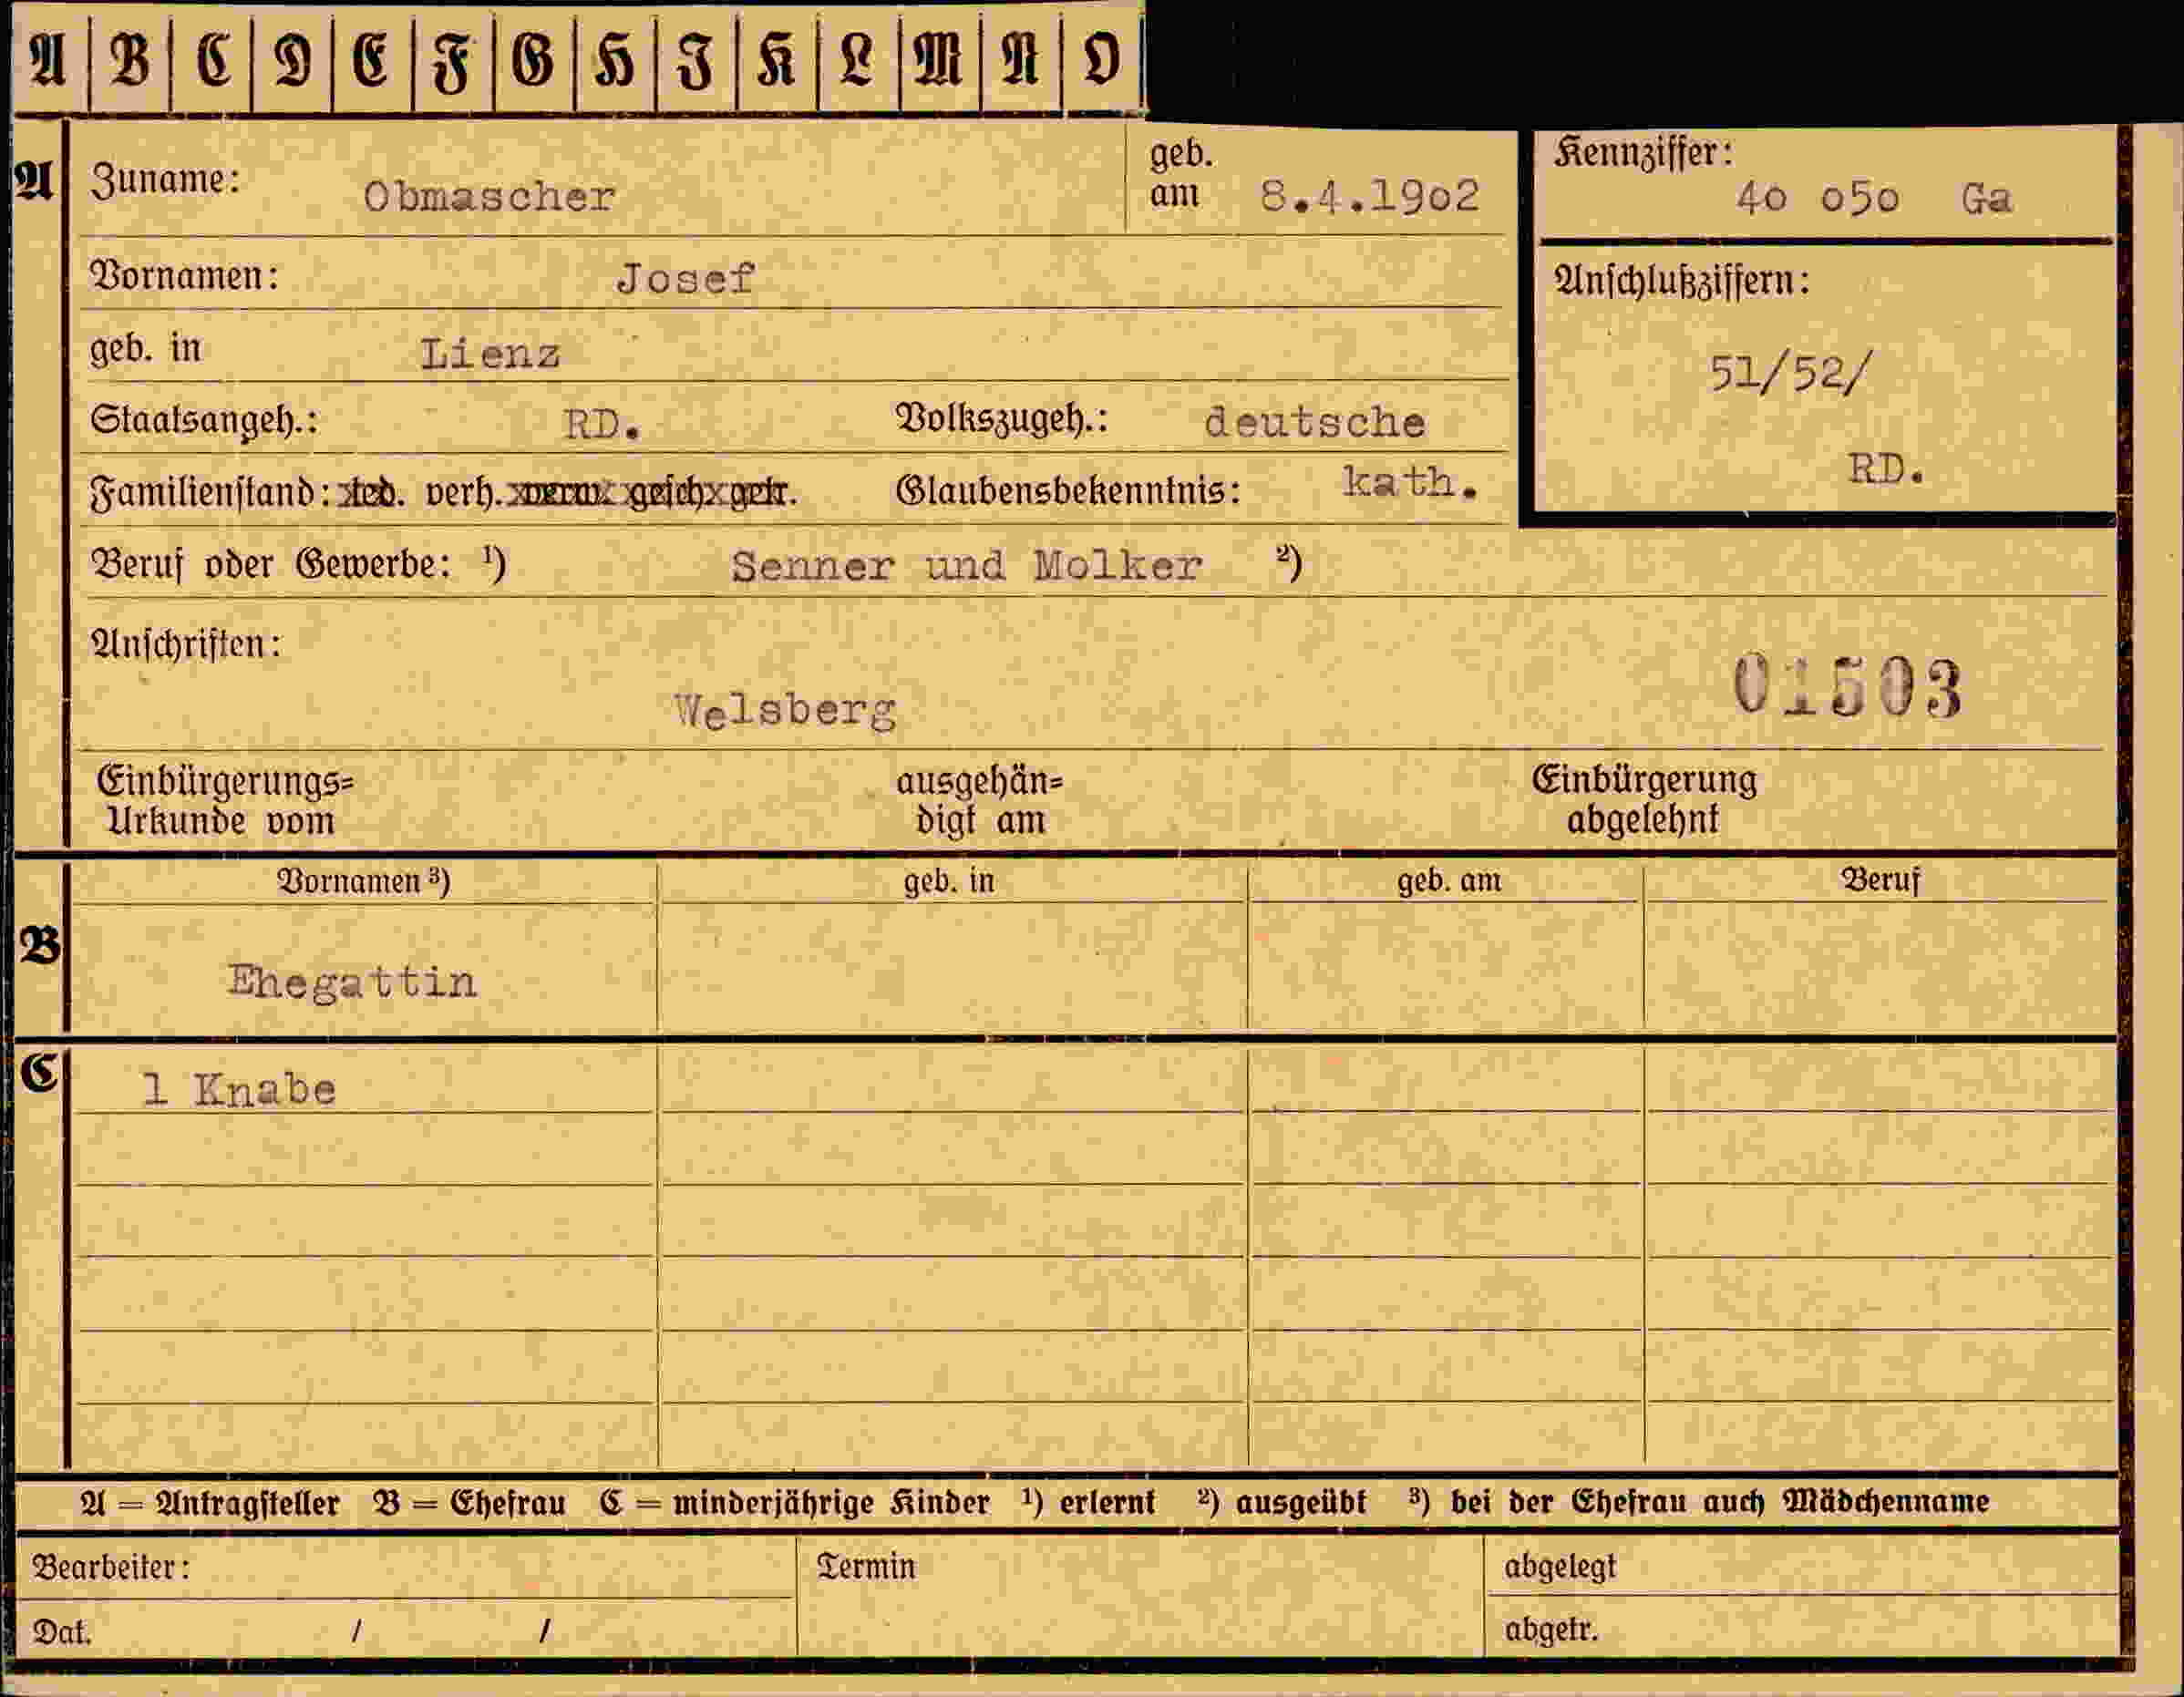 A B C D E F G H I K L M N O
A Zuname: Obmascher geb. am 8.4.1902
Kennziffer: 40 050 Ga
Vornamen: Josef
Anschlußziffern:
geb. in Lienz
51/52/
Staatsangeh.: RD. Volkszugeh.: deutsche
RD.
Familienstand: led. verh. verw. gesch. getr. Glaubensbekenntnis: kath.
Beruf oder Gewerbe: ¹) Senner und Molker ²)
Anschriften:
Welsberg 01503
Einbürgerungs= ausgehän= Einbürgerung
Urkunde vom digt am abgelehnt
Vornamen ³) geb. in geb. am Beruf
B
Ehegattin
C 1 Knabe
A = Antragsteller B = Ehefrau C = minderjährige Kinder ¹) erlernt ²) ausgeübt ³) bei der Ehefrau auch Mädchenname
Bearbeiter: Termin abgelegt
Dat. / / abgetr.